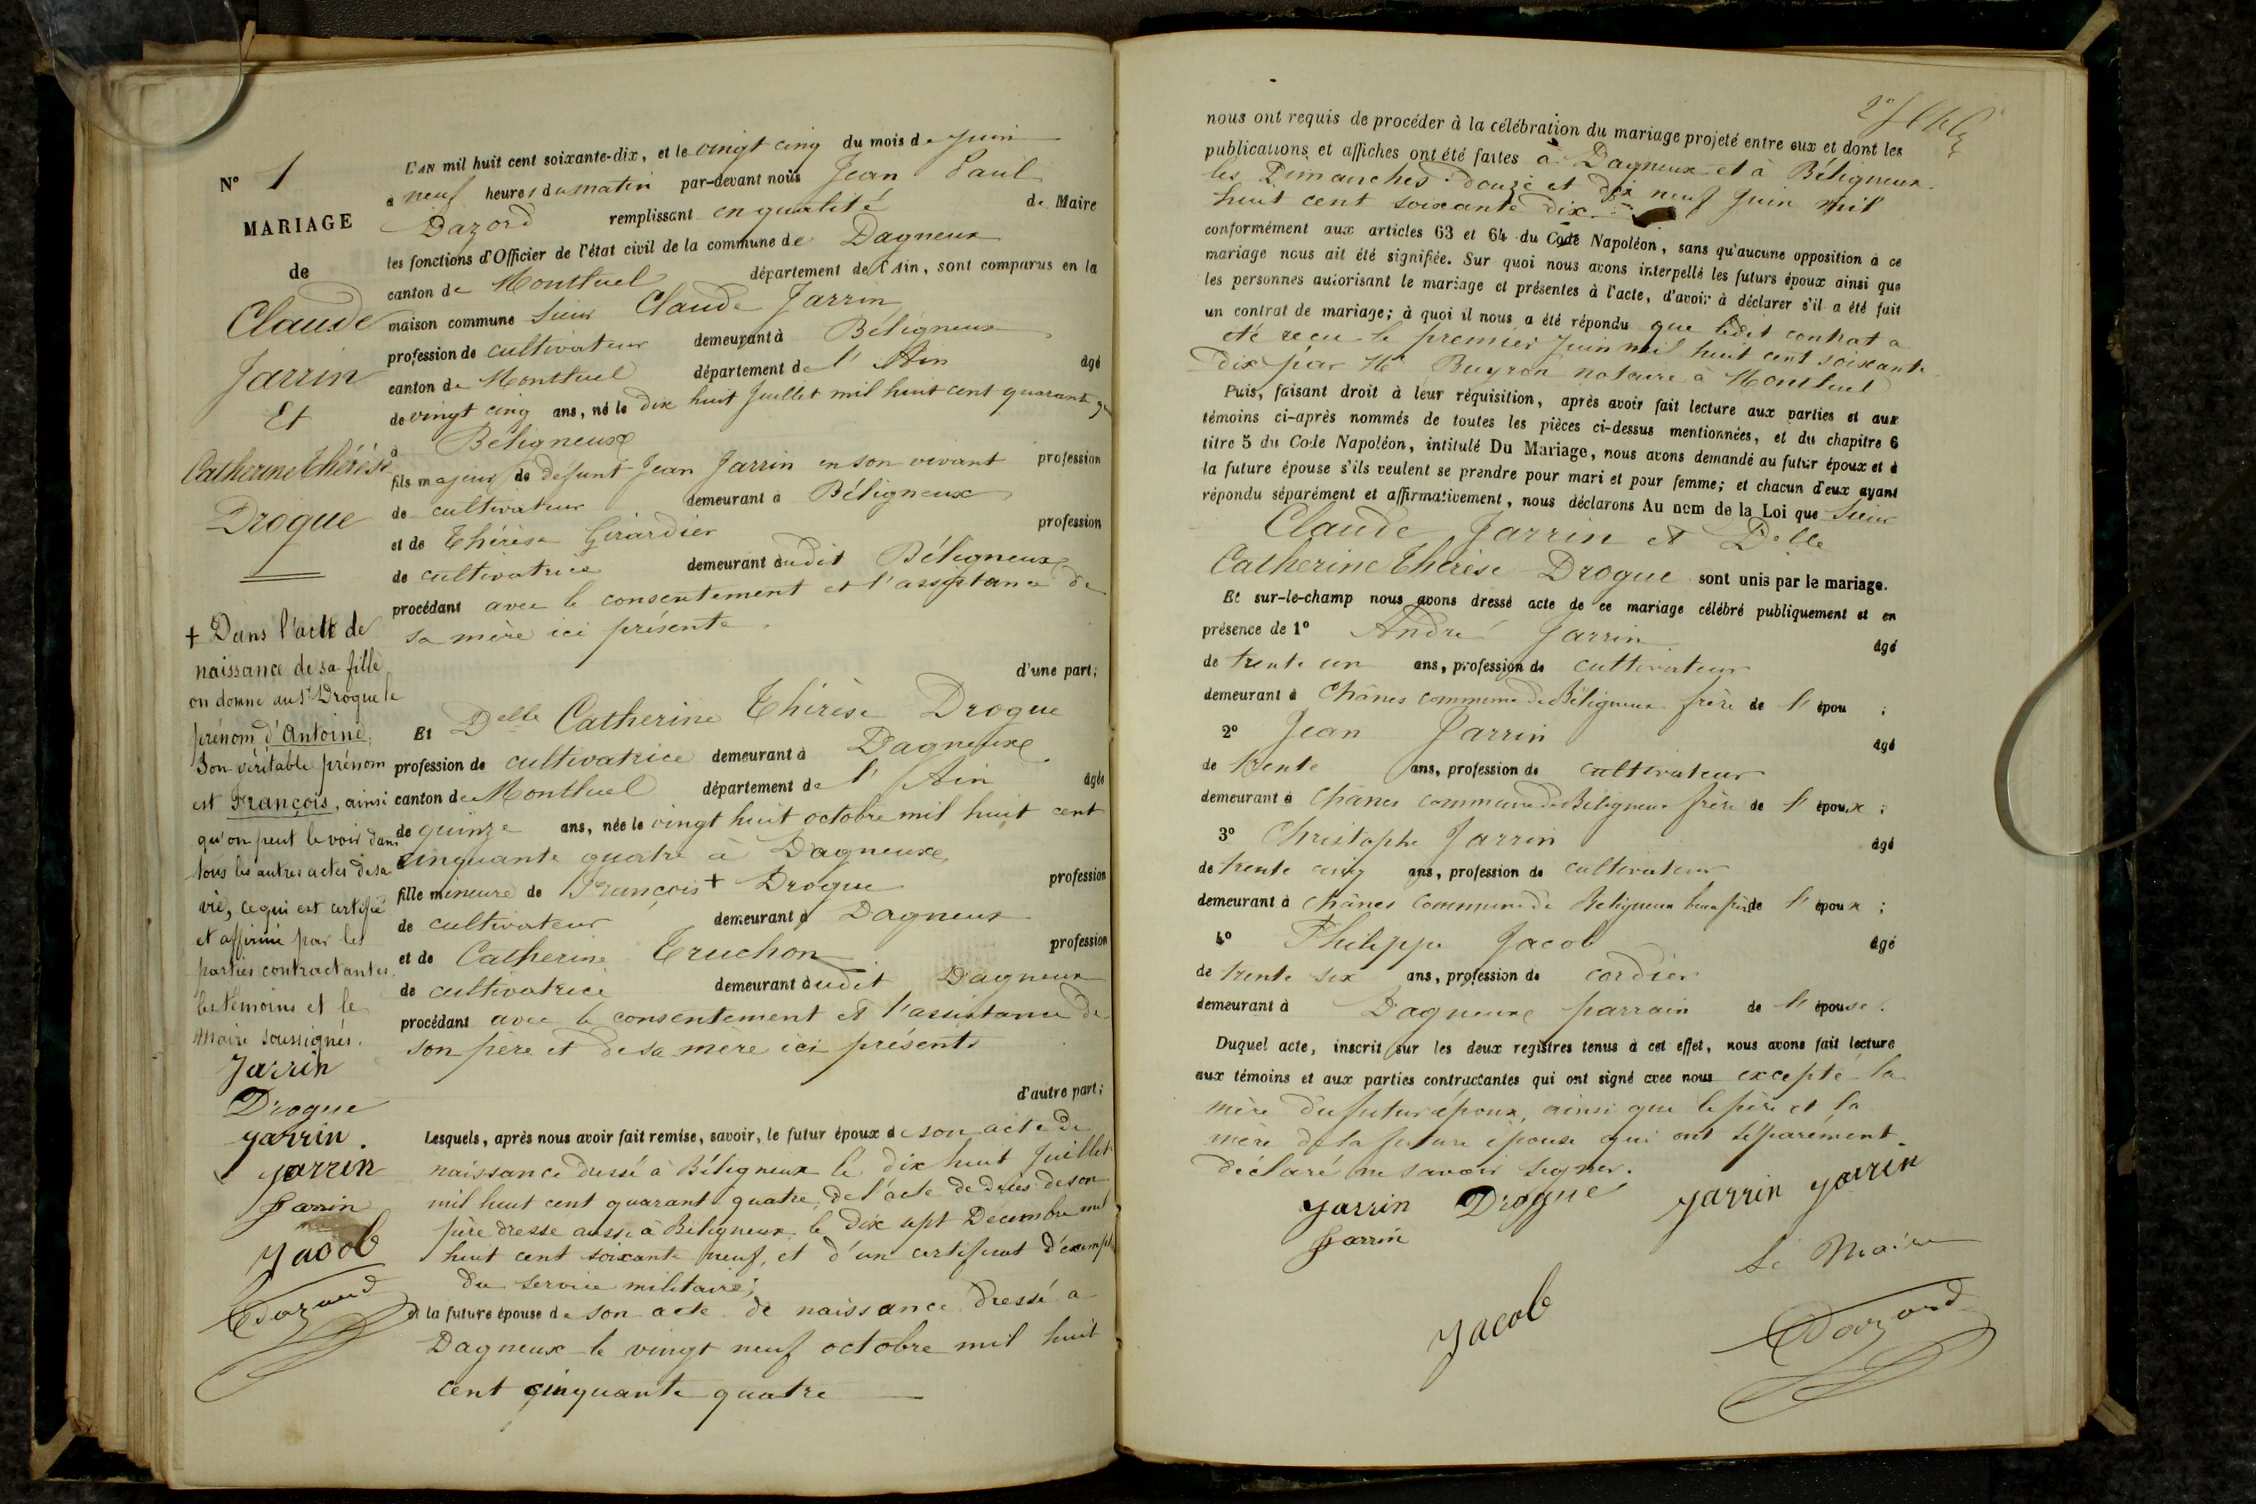 N° 1
MARIAGE
de
Claude
Jarrin
Et
Catherine Thérèse
Drogue
+ Dans l'acte de
naissance de sa fille
on donne au Sr Drogue le
prénom d'Antoine,
Son véritable prénom
est François, ainsi
qu'on peut le voir dans
tous les autres actes de sa
vie, ce qui est certifié
et affirmé par les
parties contractantes
les témoins et le
Maire soussignés.
Jarrin
Drogue
Jarrin.
Jarrin
Jarrin
Jacob
Dazord
L'AN mil huit cent soixante-dix, et le vingt cinq du mois de Juin
à neuf heures du matin par-devant nous Jean Paul
Dazord remplissant en qualité de Maire
les fonctions d'Officier de l'état civil de la commune de Dagneux
canton de Montluel département de l'Ain, sont comparus en la
maison commune Sieur Claude Jarrin
profession de cultivateur demeurant à Béligneux
canton de Montluel département de l'Ain âgé
de vingt cinq ans, né le dix huit Juillet mil huit cent quarante
à Béligneux
fils majeur de défunt Jean Jarrin en son vivant profession
de cultivateur demeurant à Béligneux
et de Thérèse Girardier profession
de cultivatrice demeurant audit Béligneux
procédant avec le consentement et l'assistance de
sa mère ici présente.
d'une part;
Et Delle Catherine Thérèse Drogue
profession de cultivatrice demeurant à Dagneux
canton de Montluel département de l'Ain âgée
de quinze ans, née le vingt huit octobre mil huit cent
cinquante quatre à Dagneux
fille mineure de François + Drogue profession
de cultivateur demeurant à Dagneux
et de Catherine Truchon profession
de cultivatrice demeurant audit Dagneux
procédant avec le consentement et l'assistance de
son père et de sa mère ici présents
d'autre part;
Lesquels, après nous avoir fait remise, savoir, le futur époux de son acte de
naissance dressé à Béligneux le dix huit Juillet
mil huit cent quarante quatre, de l'acte de décès de son
père dressé aussi à Béligneux le dix sept Décembre mil
huit cent soixante neuf, et d'un certificat d'exempt
du service militaire;
et la future épouse de son acte de naissance dressé à
Dagneux le vingt neuf octobre mil huit
cent cinquante quatre
nous ont requis de procéder à la célébration du mariage projeté entre eux et dont les
publications et affiches ont été faites à Dagneux et à Béligneux
les Dimanches douze et dix neuf Juin mil
huit cent soixante dix
conformément aux articles 63 et 64 du Code Napoléon, sans qu'aucune opposition à ce
mariage nous ait été signifiée. Sur quoi nous avons interpellé les futurs époux ainsi que
les personnes autorisant le mariage et présentes à l'acte, d'avoir à déclarer s'il a été fait
un contrat de mariage; à quoi il nous a été répondu que ledit contrat a
été reçu le premier Juin mil huit cent soixante
dix par Me Buyron notaire à Montluel
Puis, faisant droit à leur réquisition, après avoir fait lecture aux parties et aux
témoins ci-après nommés de toutes les pièces ci-dessus mentionnées, et du chapitre 6
titre 5 du Code Napoléon, intitulé Du Mariage, nous avons demandé au futur époux et à
la future épouse s'ils veulent se prendre pour mari et pour femme; et chacun d'eux ayant
répondu séparément et affirmativement, nous déclarons Au nom de la Loi que Sieur
Claude Jarrin et Delle
Catherine Thérèse Drogue sont unis par le mariage.
Et sur-le-champ nous avons dressé acte de ce mariage célébré publiquement et en
présence de 1° André Jarrin âgé
de trente un ans, profession de cultivateur
demeurant à Chânes commune de Béligneux frère de l'épou ;
2° Jean Jarrin âgé
de trente ans, profession de cultivateur
demeurant à Chânes commune de Béligneux frère de l'époux ;
3° Christophe Jarrin âgé
de trente cinq ans, profession de cultivateur
demeurant à Chânes commune de Béligneux beau frère de l'époux ;
4° Philippe Jacob âgé
de trente six ans, profession de cordier
demeurant à Dagneux parrain de l'épouse.
Duquel acte, inscrit sur les deux registres tenus à cet effet, nous avons fait lecture
aux témoins et aux parties contractantes qui ont signé avec nous excepté la
mère du futur époux, ainsi que le père et la
mère de la future épouse qui ont séparément
déclaré ne savoir signer.
Jarrin Drogue Jarrin Jarrin
Jarrin
Le Maire
Jacob
Dazord